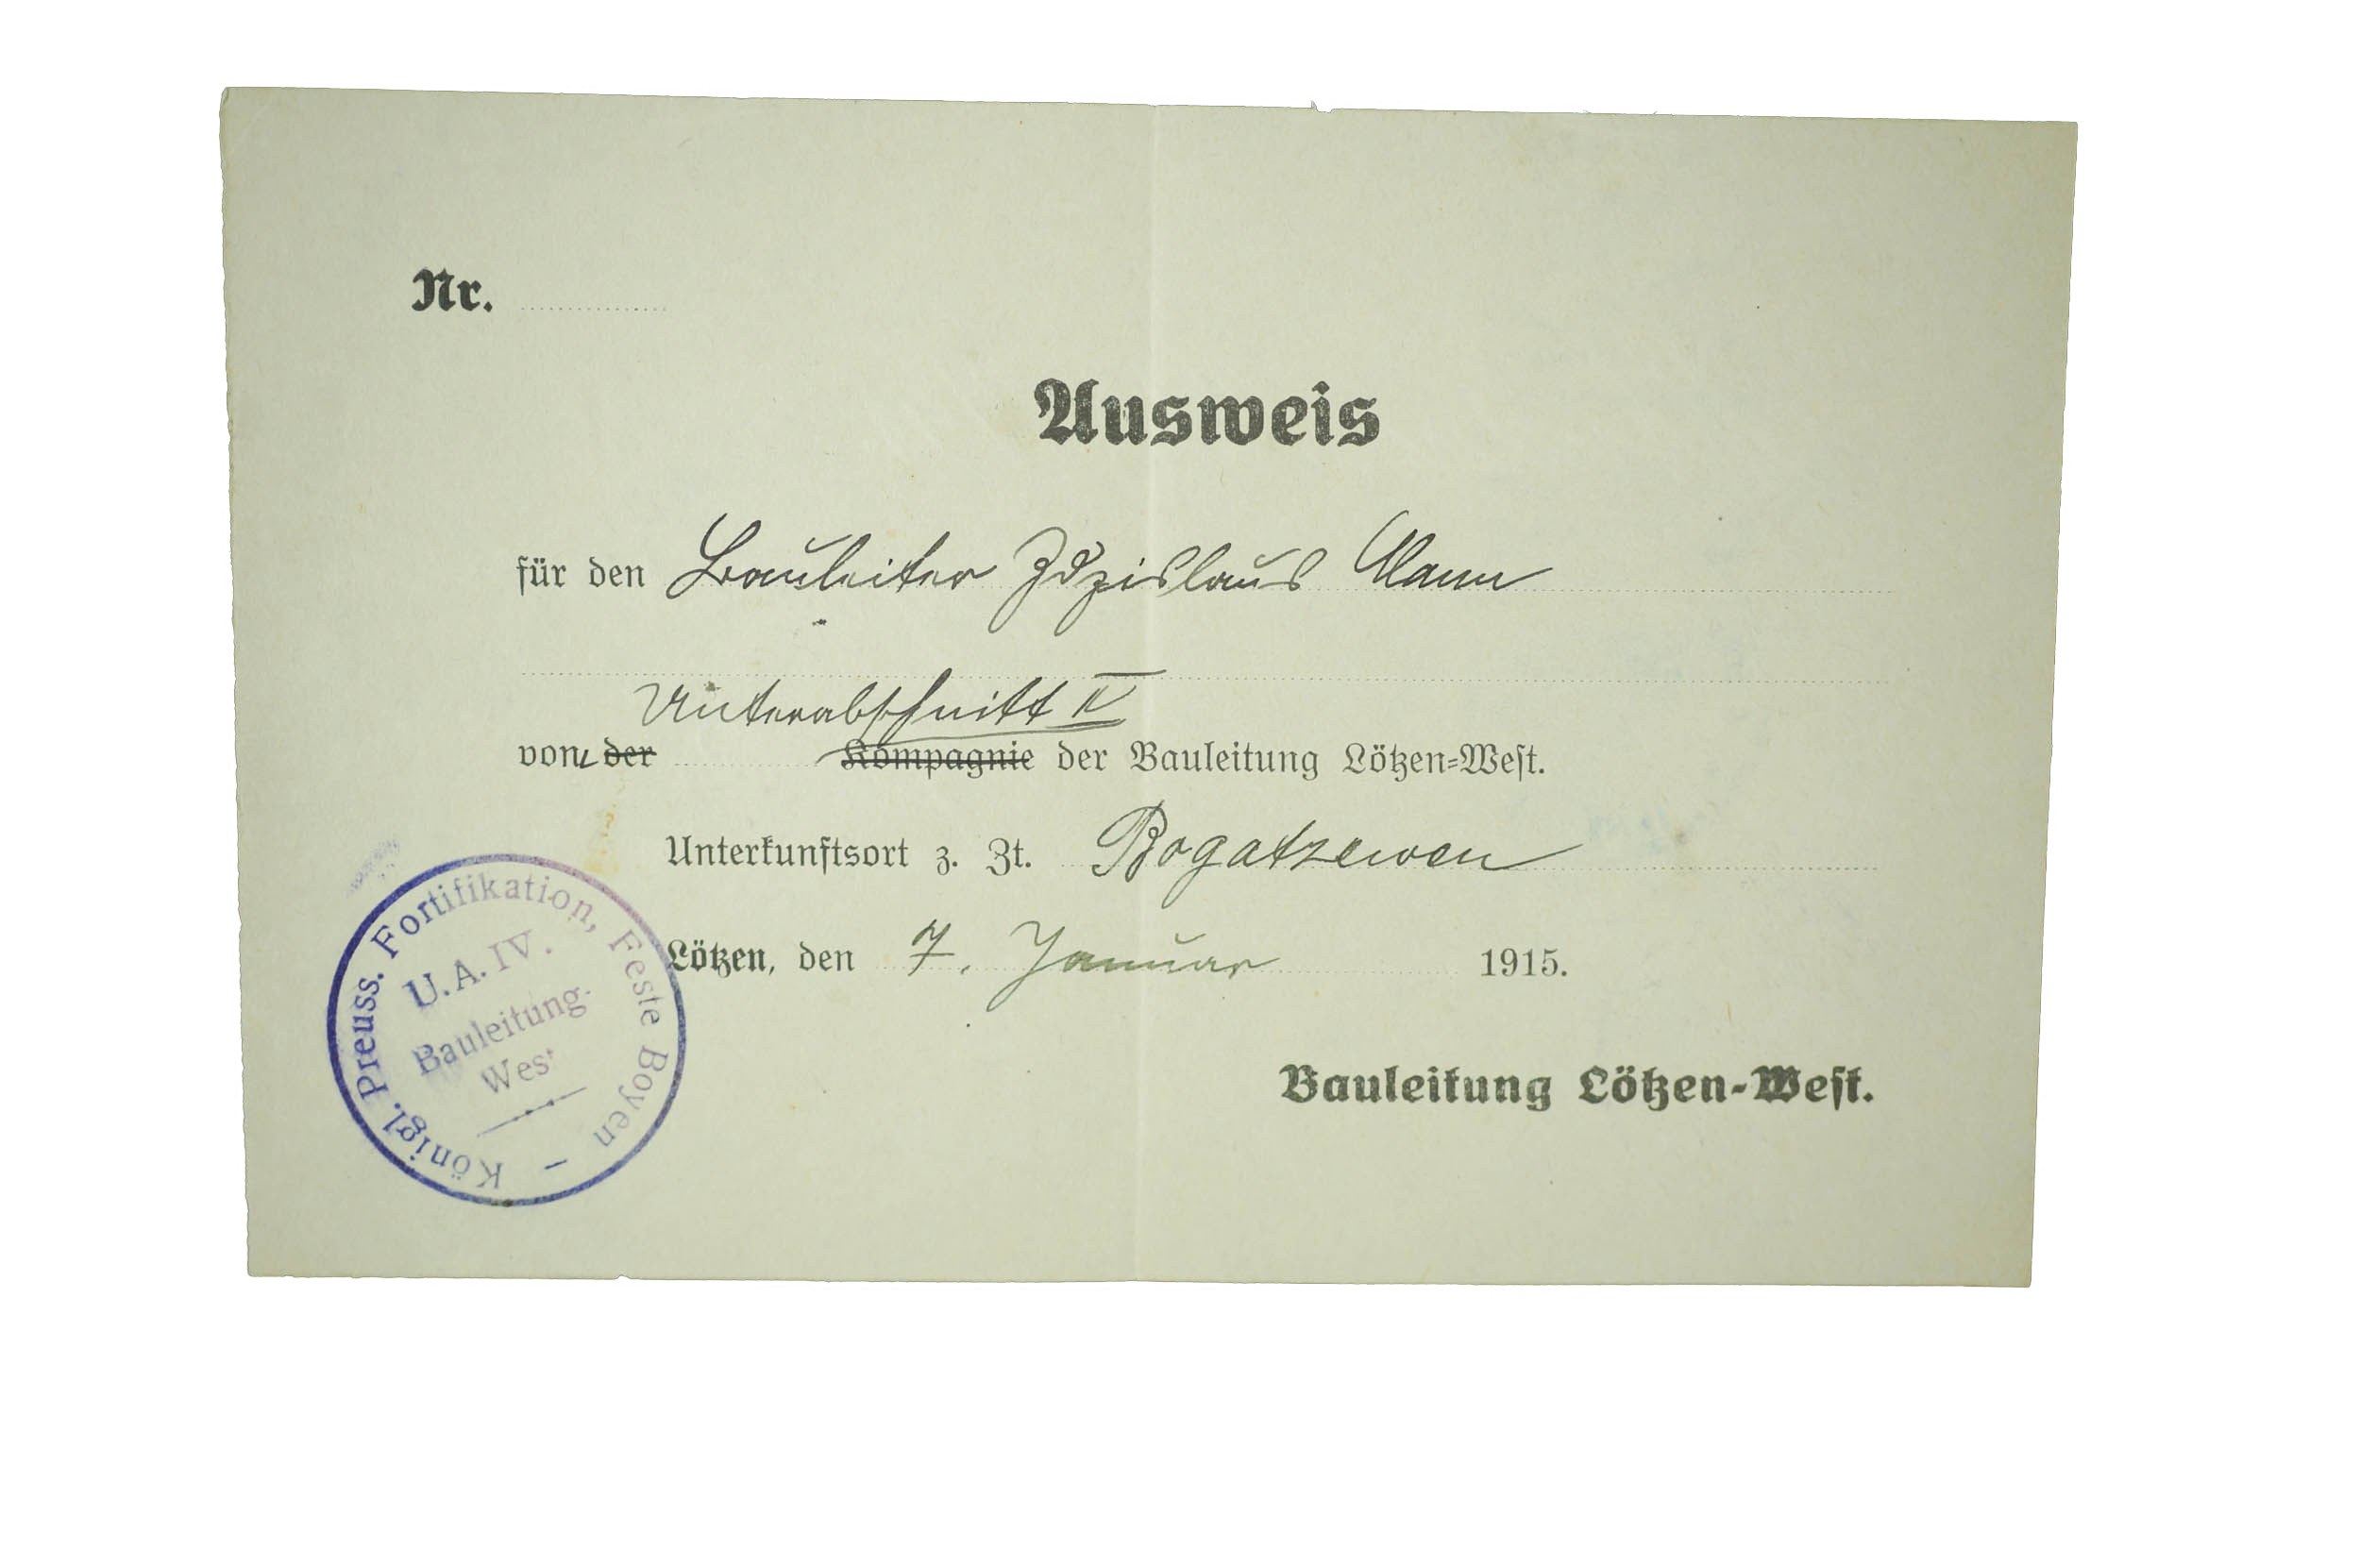 Nr.
Ausweis
für den Bauleiter Zdzislaus
Unterabschnitt IV
von der Kompagnie der Bauleitung Lötzen-West.
Unterkunftsort z. Zt. Bogatzewen
Lötzen, den 7. Januar 1915.
Bauleitung Lötzen-West.
Königl. Preuss. Fortifikation, Feste Boyen –
U. A. IV.
Bauleitung
West